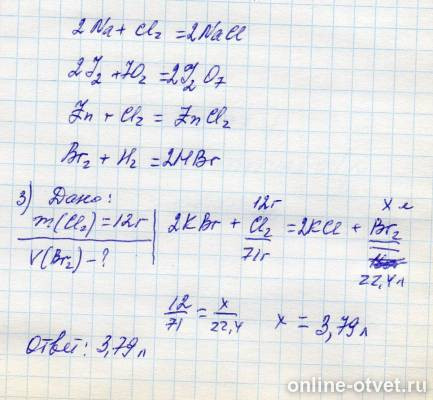 2Na + Cl₂ = 2NaCl
2J₂ + 7O₂ = 2J₂O₇
Zn + Cl₂ = ZnCl₂
Br₂ + H₂ = 2HBr
3) Дано:
m(Cl₂) = 12г
V(Br₂) - ?
12г x л
2KBr + Cl₂ = 2KCl + Br₂
71г 22,4л
12/71 = x/22,4 x = 3,79 л
Ответ: 3,79 л
online-otvet.ru